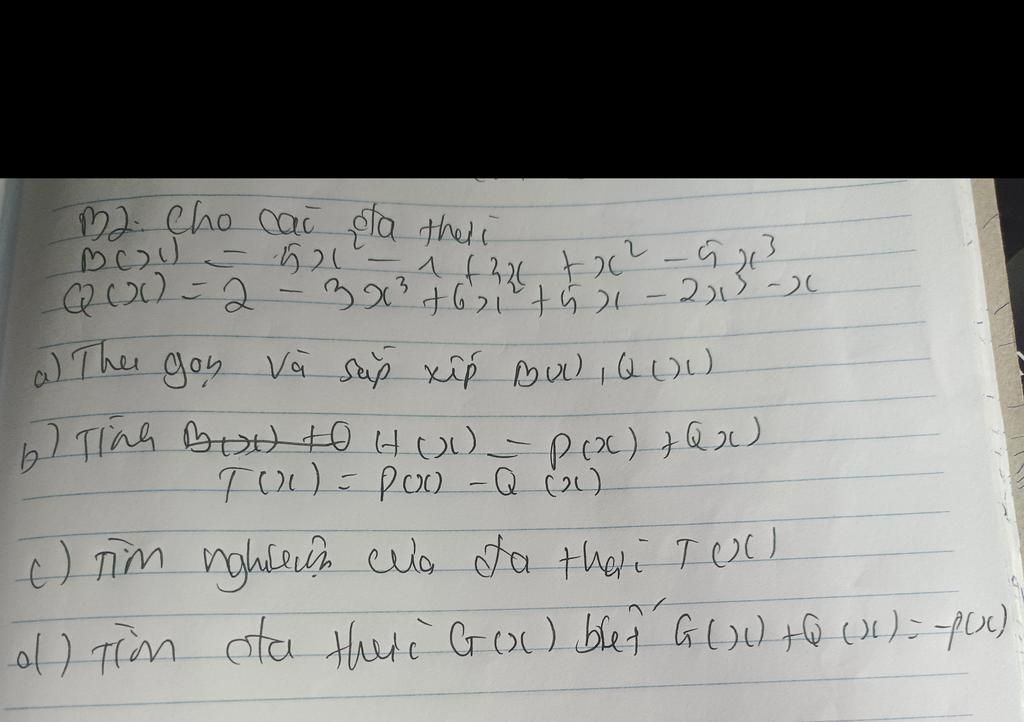 B2. Cho các đa thức
B(x) = 5x - 1 + 3x + x² - 5x³
Q(x) = 2 - 3x³ + 6x² + 5x - 2x³ - x
a) Thu gọn và sắp xếp B(x), Q(x)
b) Tính B(x) + Q H(x) = P(x) + Q x)
T(x) = P(x) - Q (x)
c) Tìm nghiệm của đa thức T(x)
d) Tìm đa thức G(x) biết G(x) + Q(x) = -P(x)